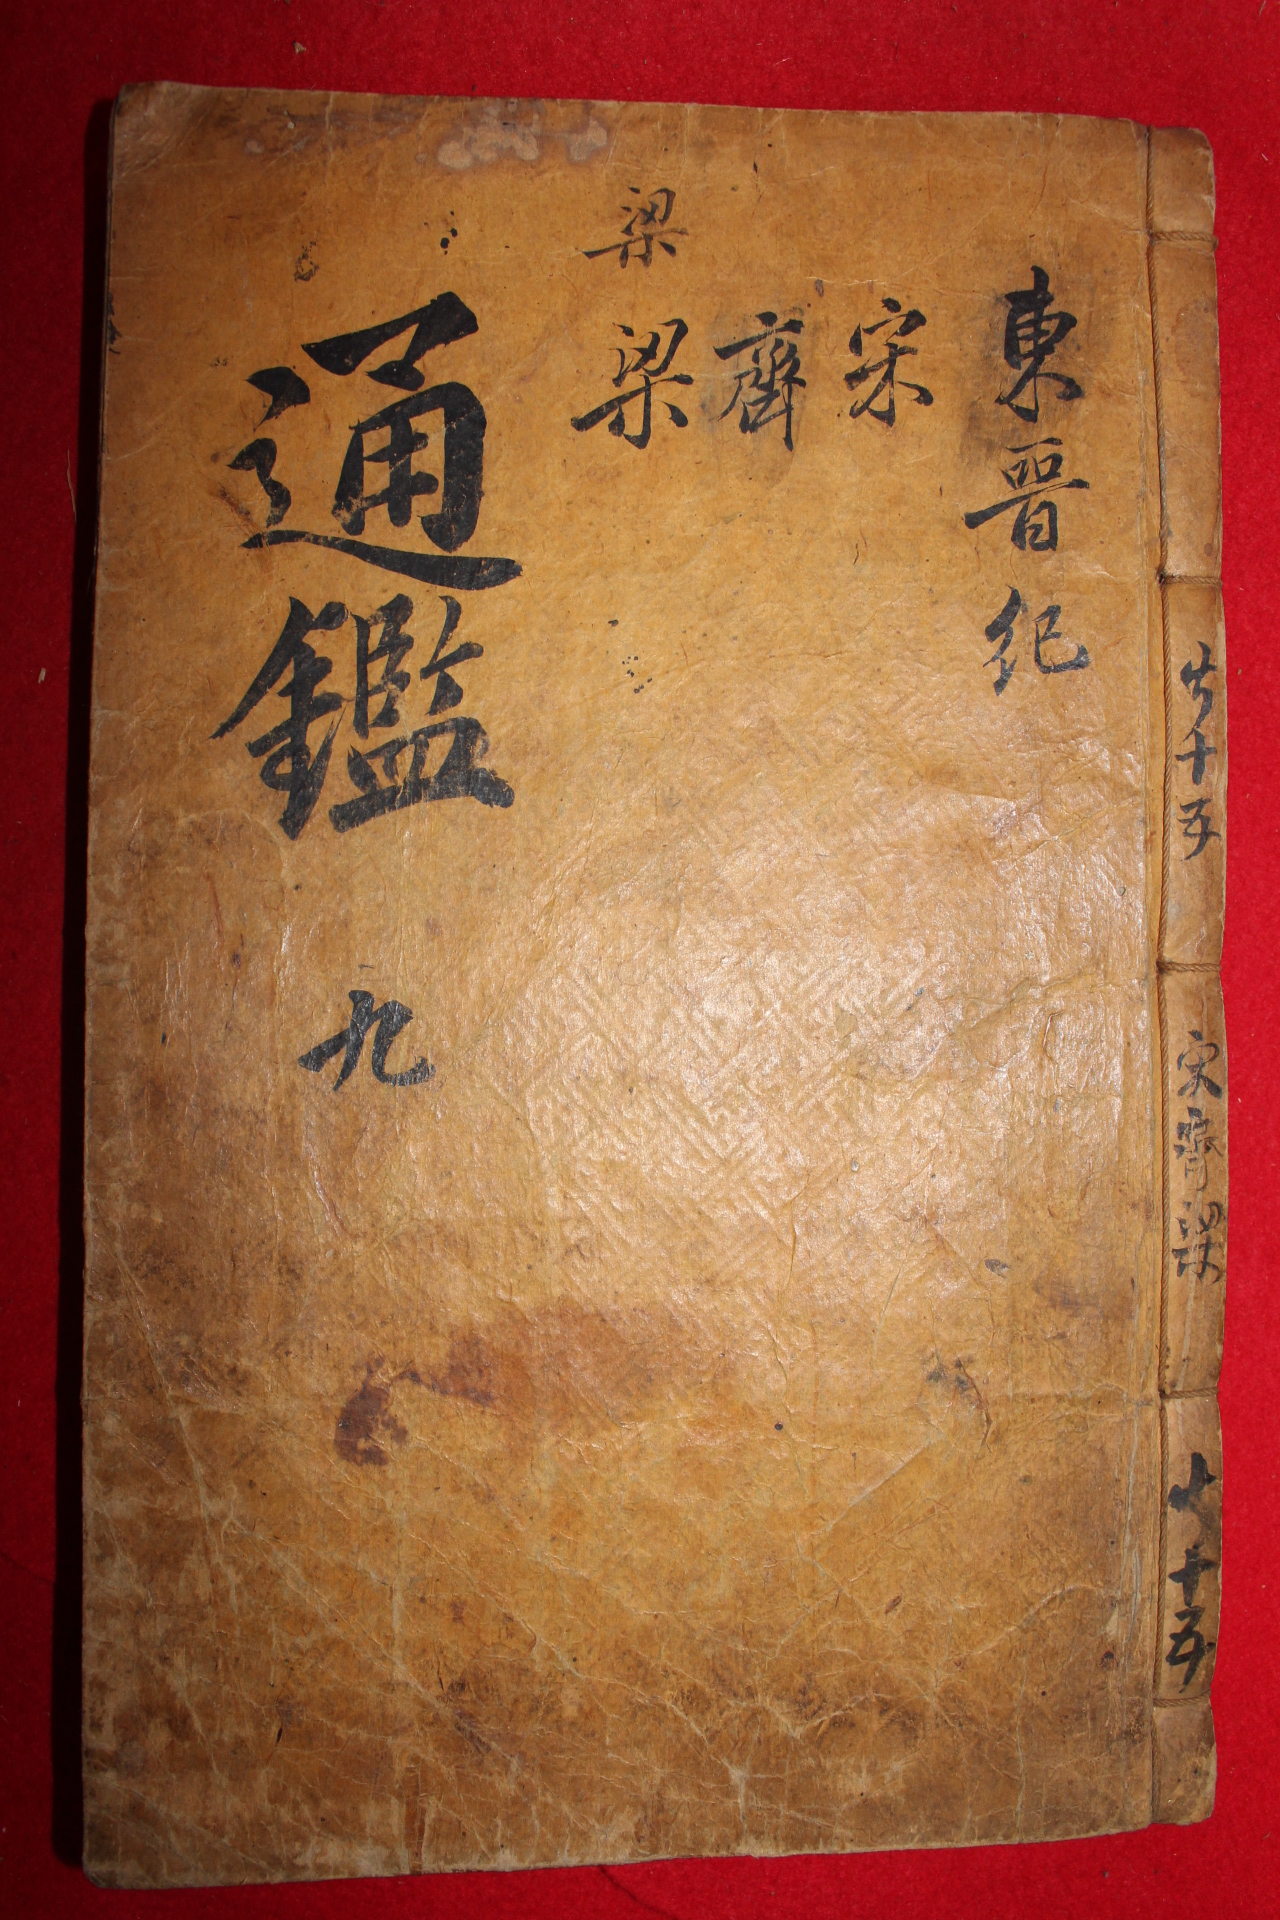 東晉紀
宋
齊
梁
梁
通鑑
九
共十五
宋齊梁
共十五